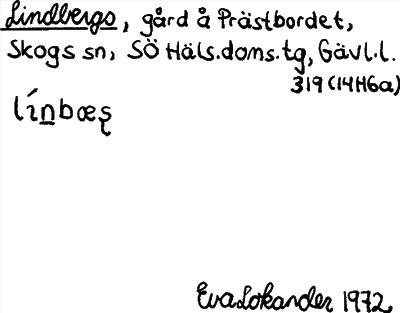 Lindbergs, gård å Prästbordet,
Skogs sn, SÖ Häls.doms.tg, Gävl.l.
319 (14H6a)
lín̲bæş
Eva Lokander 1972